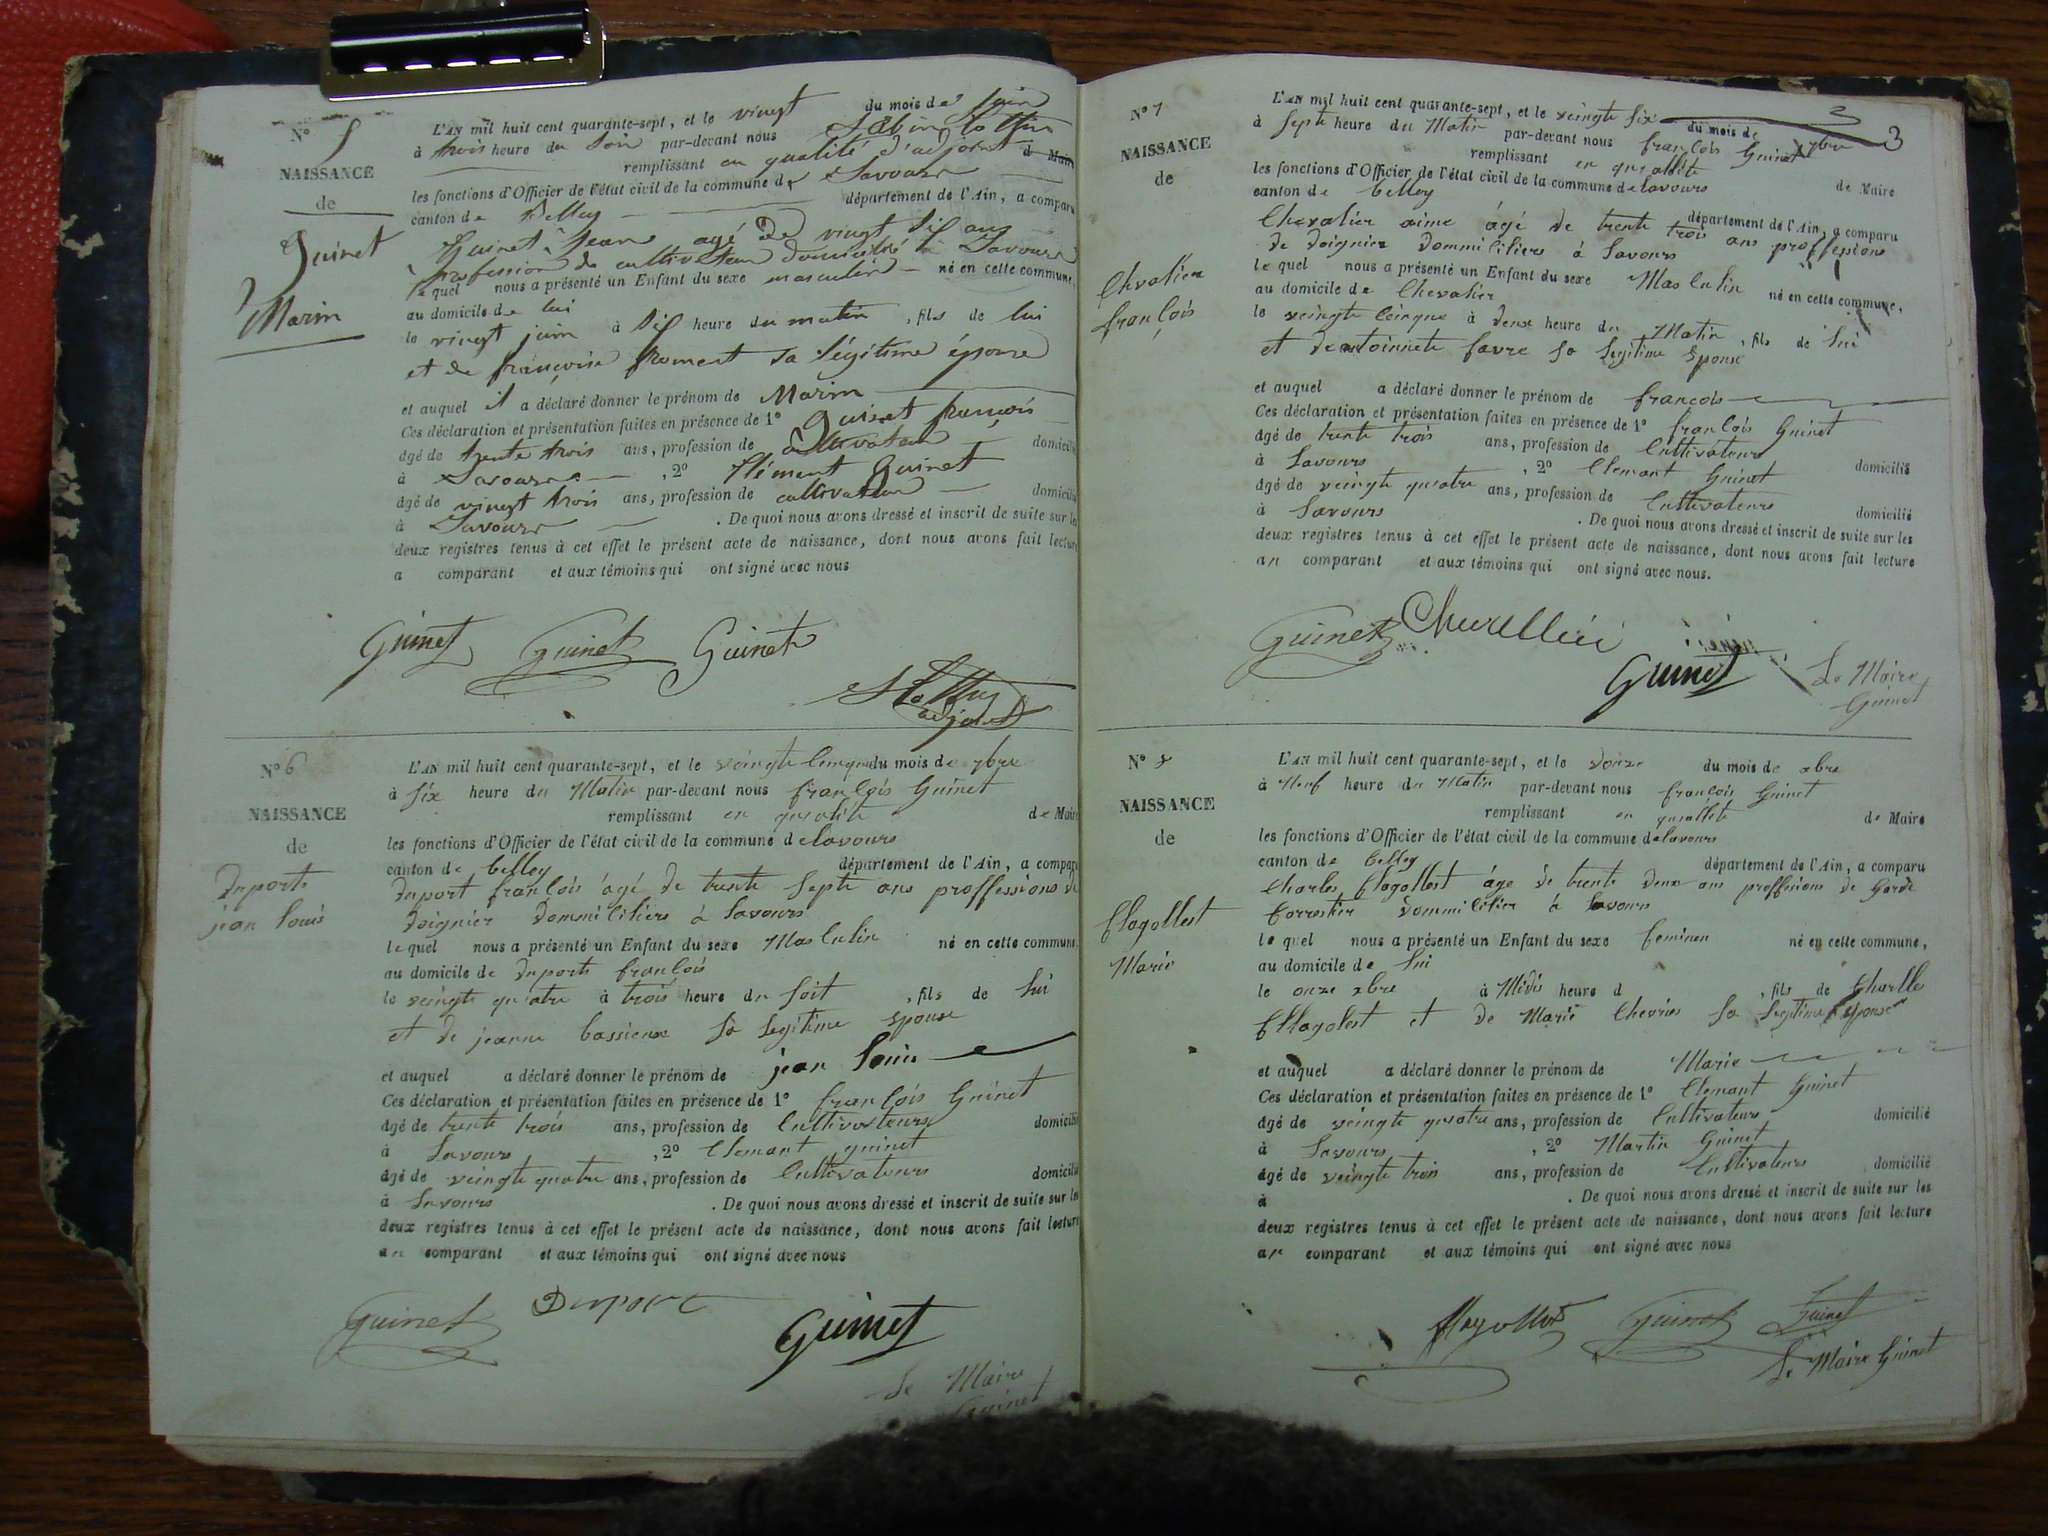 N° 5
NAISSANCE
de
Guinet
Marin
L'AN mil huit cent quarante-sept, et le vingt du mois de juin
à trois heure du soir par-devant nous
remplissant en qualité d'adjoint de Maire
les fonctions d'Officier de l'état civil de la commune de Lavours
canton de Belley département de l'Ain, a comparu
Guinet Jean agé de vingt six ans
profession de cultivateur domicilié à Lavours
le quel nous a présenté un Enfant du sexe masculin né en cette commune,
au domicile de lui
le vingt juin à six heure du matin, fils de lui
et de françoise froment sa légitime épouse
et auquel il a déclaré donner le prénom de Marin
Ces déclaration et présentation faites en présence de 1° Guinet françois
âgé de trente trois ans, profession de cultivateur domicilié
à Lavours , 2° Clément Guinet
âgé de vingt trois ans, profession de cultivateur domicilié
à Lavours . De quoi nous avons dressé et inscrit de suite sur les
deux registres tenus à cet effet le présent acte de naissance, dont nous avons fait lecture
a comparant et aux témoins qui ont signé avec nous
Guinet Guinet Guinet
adjoint
N° 6
NAISSANCE
de
Duports
jean louis
L'AN mil huit cent quarante-sept, et le veingte cinque du mois de 7bre
à six heure du Matin par-devant nous françois Guinet
remplissant en qualité de Maire
les fonctions d'Officier de l'état civil de la commune de lavours
canton de belley département de l'Ain, a comparu
Duport françois âgé de trente septe ans proffessions de
doignier dommiliers à lavours
le quel nous a présenté un Enfant du sexe Masculin né en cette commune,
au domicile de duports françois
le veingte quatre à trois heure du soit , fils de lui
et de jeanne bassieux sa legitime epouse
et auquel a déclaré donner le prénom de jean louis
Ces déclaration et présentation faites en présence de 1° françois Guinet
âgé de trente trois ans, profession de Cultivateurs domicilié
à Lavours , 2° Clemant guinet
âgé de veingte quatre ans, profession de Cultivateurs domicilié
à Lavours . De quoi nous avons dressé et inscrit de suite sur les
deux registres tenus à cet effet le présent acte de naissance, dont nous avons fait lecture
au comparant et aux témoins qui ont signé avec nous
Guinet Duport Guinet
Le Maire
Guinet
3
N° 7
NAISSANCE
de
Chvalier
françois
L'AN mil huit cent quarante-sept, et le veingte six du mois de 7bre
à septe heure du Matin par-devant nous françois Guinet
remplissant en quallité de Maire
les fonctions d'Officier de l'état civil de la commune de lavours
canton de belley département de l'Ain, a comparu
Chevalier aime âgé de trente trois ans proffesions
de doignier dommiliers à lavours
le quel nous a présenté un Enfant du sexe Masculin né en cette commune,
au domicile de Chevalier
le veingte cinque à deux heure du Matin, fils de lui
et dentoinnete favre sa legitime epouse
et auquel a déclaré donner le prénom de françois
Ces déclaration et présentation faites en présence de 1° françois Guinet
âgé de trente trois ans, profession de Cultivateurs
à Lavours , 2° Clemant Guinet domicilié
âgé de veingte quatre ans, profession de Cultivateurs
à Lavours domicilié
. De quoi nous avons dressé et inscrit de suite sur les
deux registres tenus à cet effet le présent acte de naissance, dont nous avons fait lecture
au comparant et aux témoins qui ont signé avec nous.
Guinet
Guinet Le Maire
Guinet
N° 8
NAISSANCE
de
Marie
L'AN mil huit cent quarante-sept, et le douze du mois de xbre
à Neuf heure du Matin par-devant nous françois Guinet
remplissant en quallité de Maire
les fonctions d'Officier de l'état civil de la commune de lavours
canton de belley département de l'Ain, a comparu
Charles âge de trente deux ans proffesions de Garde
forrestier dommilier à lavours
le quel nous a présenté un Enfant du sexe feminen né en cette commune,
au domicile de lui
le onze xbre à Midis heure d , fils de Charlle
et de Marie sa legitime epouse
et auquel a déclaré donner le prénom de Marie
Ces déclaration et présentation faites en présence de 1° Clemant Guinet
âgé de veingte quatre ans, profession de Cultivateurs domicilié
à Lavours , 2° Martin Guinet
âgé de veingte trois ans, profession de Cultivateurs domicilié
à . De quoi nous avons dressé et inscrit de suite sur les
deux registres tenus à cet effet le présent acte de naissance, dont nous avons fait lecture
au comparant et aux témoins qui ont signé avec nous
Guinet Guinet
Le Maire Guinet